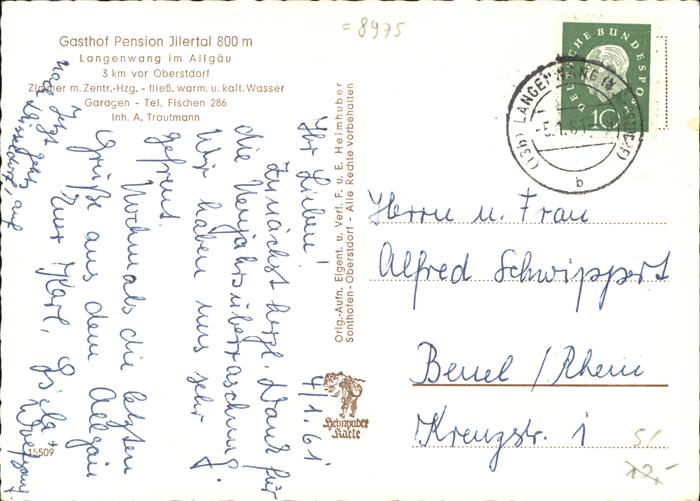 = 8975
Gasthof Pension Illertal 800 m
Langenwang im Allgäu
3 km vor Oberstdorf
Zimmer m. Zentr.-Hzg. - fließ. warm. u. kalt. Wasser
Garagen - Tel. Fischen 286
Inh. A. Trautmann
4/1.61
Ihr Lieben!
Zunächst herzl. Dank für
die Neujahrsüberraschung.
Wir haben uns sehr
gefreut.
Nochmals die letzten
Grüße aus dem Allgäu
Eure Karl, Gisela +
Wolfgang
15509
Orig.-Aufn. Eigent. u. Verl. F. u. E. Heimhuber
Sonthofen-Oberstdorf - Alle Rechte vorbehalten
Heimhuber
Karte
DEUTSCHE BUNDESPOST
10
(13b) LANGENWANG
b
Herrn u. Frau
Alfred Schwippert
Beuel / Rhein
Kreuzstr. 1
5/
12,-